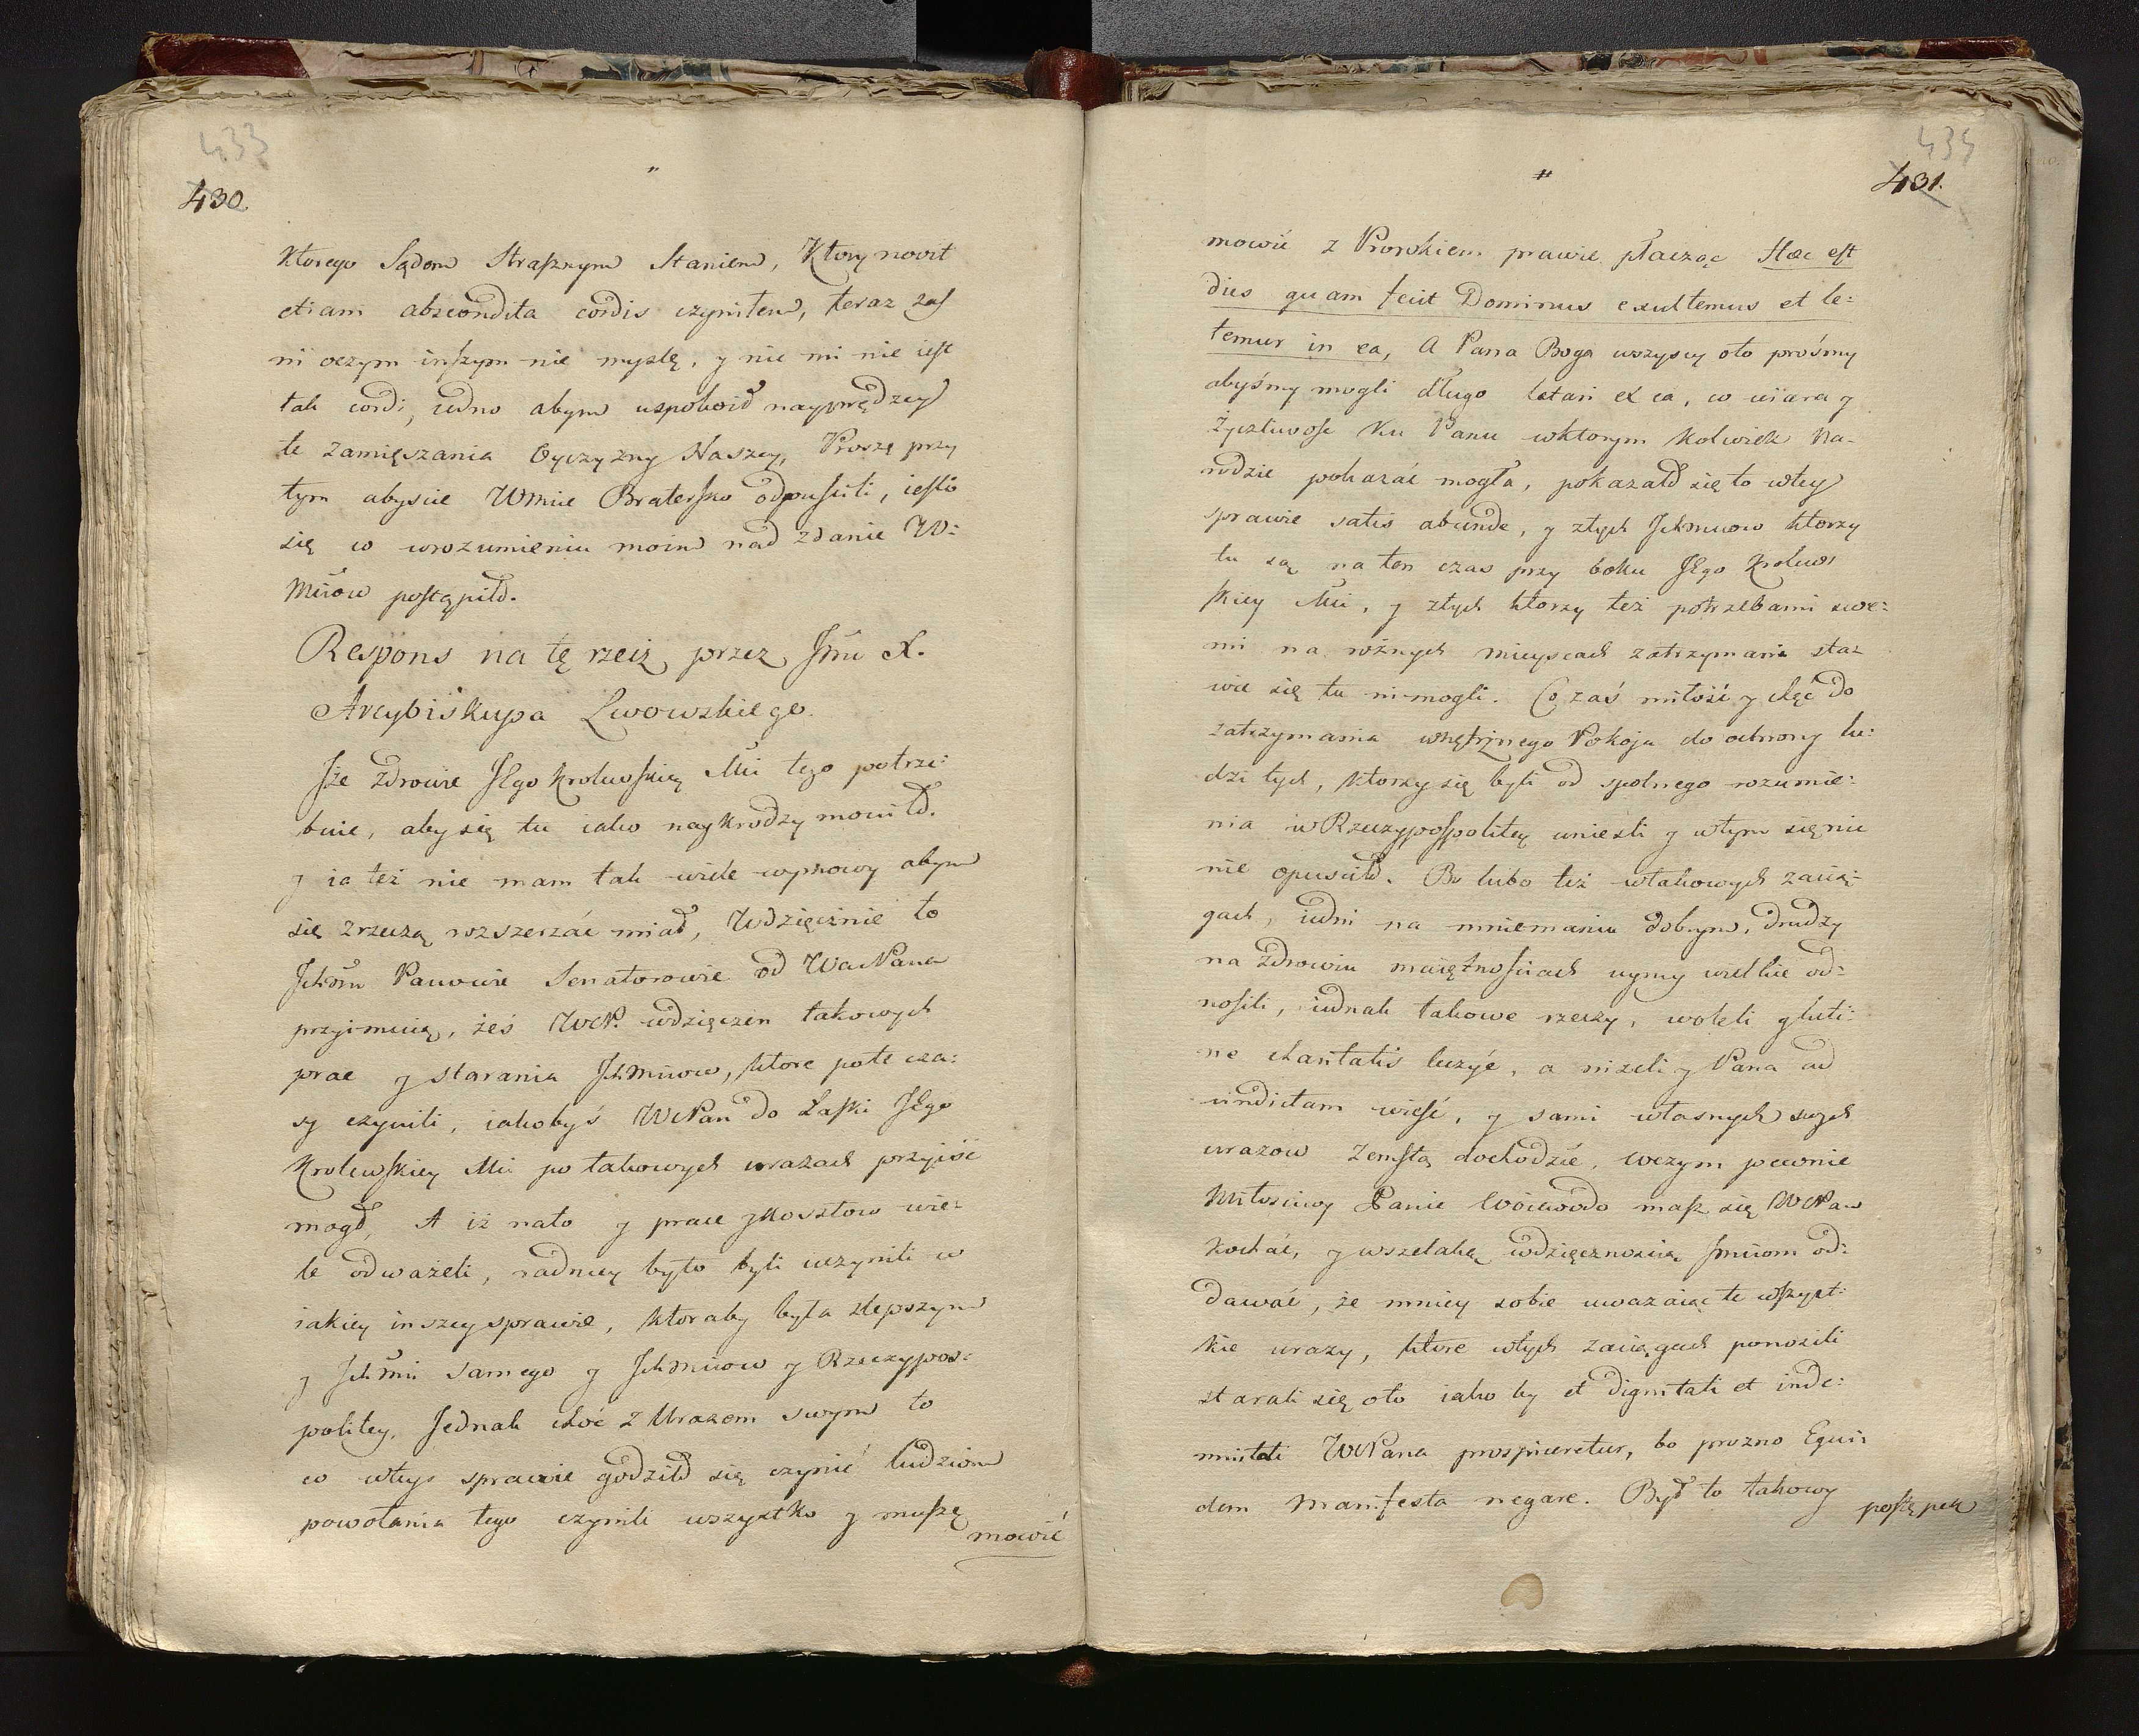 433
430
Ktorego Sądem Strasznym Staniem, Ktory novit
etiam abscondita cordis czynitem, teraz zas
ni oczym inszym nie myslę, y nic mi nie iest
tak cordi, iedno abym uspokoił nayprędzey
te zamięszania Oyczyzny Naszey, Proszę przy
tym abyscie Wmcie Bratersko odpuscili, iesli
się co wrozumieniu moim nad zdanie W:
Mciow postąpiło.
Respons na tę rzecz przez Jmci X.
Arcybiskupa Lwowskiego.
Jże zdrowie JEgo Krolewskiey Mci tego potrze:
buie, aby się tu iako naykrodzy mowiło.
y ia też nie mam tak wiele wymowy abym
się zrzeczą rozszerzać miał, Wdzięcznie to
Jchmm Panowie Senatorowie od WMPana
przyimuią, żeś WM. wdzięczen takowych
prac y starania Jchmciow, ktore pote cza:
sy czynili, iakobyś WMPan do Łaski JEgo
Krolewskiey Mci po takowych urazach przyiść
mogł, A iż nato y prace ykosztow wie:
le odważeli, radniey byto byli uczynili w
iakiey inszey sprawie, ktoraby była zlepszym
y Jchmci samego y Jchmciow y Rzeczypos:
politey, Jednak choć z Urazem swym to
co wtey sprawie godziło się czynić ludziom
powołania tego czynili wszystko y muszę
mowić
434
431.
mowić z Prorokiem prawie płacząc Hæc est
dies quam fecit Dominus exultemus et le:
temur in ea, A Pana Boga wszyscy oto prośmy
abyśmy mogli długo letari ex ea, co wiara y
Życzliwość Ku Panu wktorym kolwiek Na-
rodzie pokazać mogła, pokazało się to wtey
sprawie satis abunde, y ztych Jchmciow ktorzy
tu są na ten czas przy boku JEgo Krolew
skiey Mci, y ztych ktorzy też potrzebami swe:
mi na rożnych mieyscach zatrzymani sta:
wić się tu niemogli. Co zaś miłość y chęć do
zatrzymania wnętrznego Pokoju do ochrony lu:
dzi tych, ktorzy się byli od spolnego rozumie:
nia w Rzeczypospolitey unieśli y wtym się nic
nie opusciło. Bo lubo też wtakowych zacią-
gach, iedni na mniemaniu dobrym, drudzy
na zdrowiu maiętnościach uymy wielkie od:
nosili, iednak takowe rzeczy, woleli gluti:
ne charitatis leczyć, a niżeli y Pana ad
vindictam wieść, y sami własnych swych
urazow zemstą dochodzić, wczym pewnie
Miłosciwy Panie Woiewodo masz się WMPan
kochać, y wszelaką wdzięcznoscią Jmciom od:
dawać, że mniey sobie uważaiąc te wszyst:
kie urazy, ktore wtych zaciągach ponosili
starali się oto iako by et dignitati et inde:
mnitati WMPana prospiceretur, bo prozno Equi:
dem manifesta negare. Był to takowy
postępek